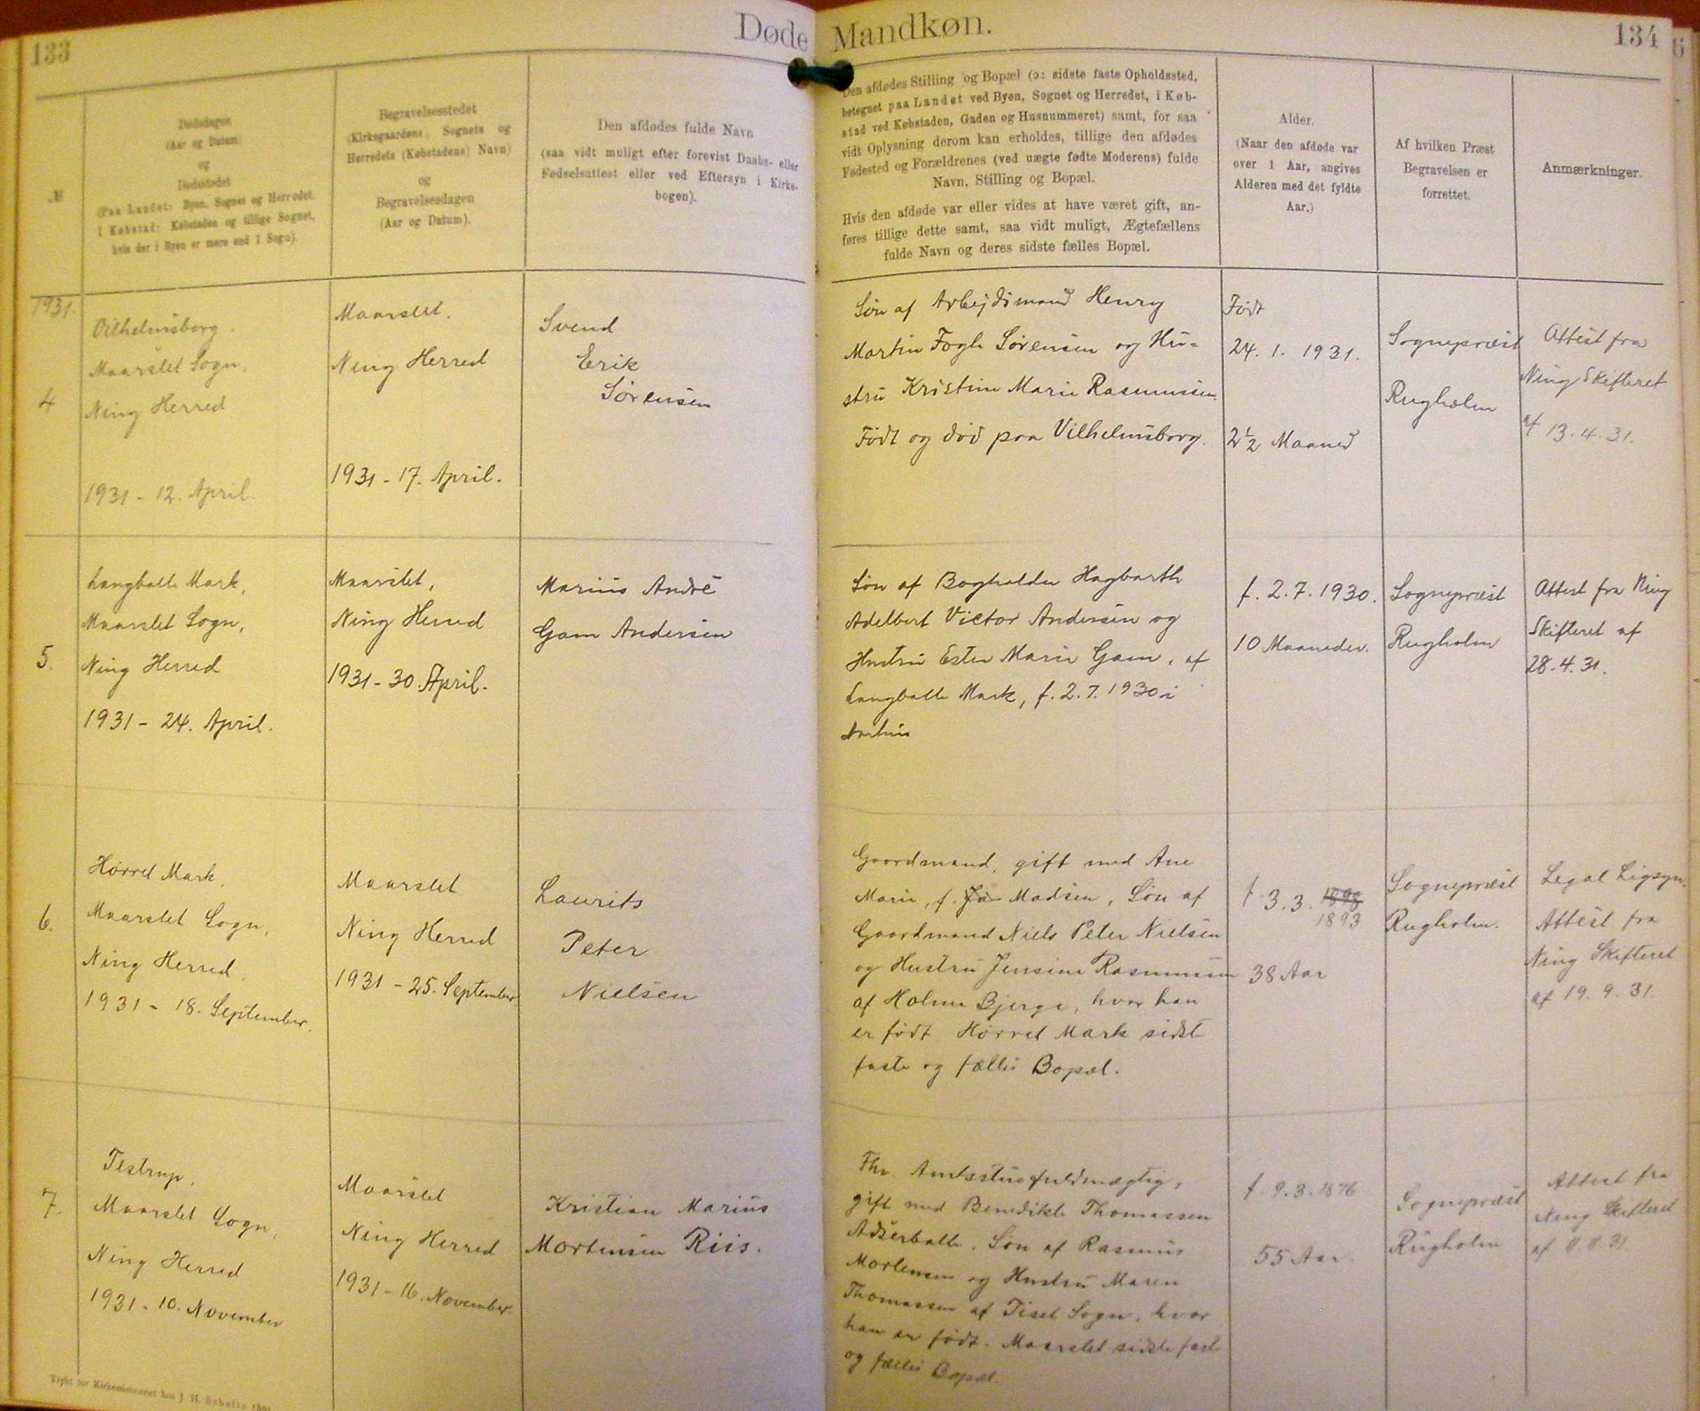 133
Døde
Mandkøn.
134
№
Dødsdagen
(Aar og Datum)
og
Dødsstedet
(Paa Landet: Byen, Sognet og Herredet.
I Købstad: Købstaden og tillige Sognet,
hvis der i Byen er mere end 1 Sogn).
Begravelsesstedet
(Kirkegaardens, Sognets og
Herredets (Købstadens) Navn)
og
Begravelsesdagen
(Aar og Datum).
Den afdødes fulde Navn
(saa vidt muligt efter forevist Daabs- eller
Fødselsattest eller ved Eftersyn i Kirke-
bogen).
Den afdødes Stilling og Bopæl (ɔ: sidste faste Opholdssted,
betegnet paa Landet ved Byen, Sognet og Herredet, i Køb-
stad ved Købstaden, Gaden og Husnummeret) samt, for saa
vidt Oplysning derom kan erholdes, tillige den afdødes
Fødested og Forældrenes (ved uægte fødte Moderens) fulde
Navn, Stilling og Bopæl.
Hvis den afdøde var eller vides at have været gift, an-
føres tillige dette samt, saa vidt muligt, Ægtefællens
fulde Navn og deres sidste fælles Bopæl.
Alder.
(Naar den afdøde var
over 1 Aar, angives
Alderen med det fyldte
Aar.)
Af hvilken Præst
Begravelsen er
forrettet.
Anmærkninger.
1931.
4
Vilhelmsborg.
Maarslet Sogn,
Ning Herred
1931 - 12. April.
Maarslet.
Ning Herred
1931 - 17. April.
Svend
Erik
Sørensen
Søn af Arbejdsmand Henry
Martin Fogh Sørensen og Hu-
stru Kristine Marie Rasmussen.
Født og død paa Vilhelmsborg.
Født
24. 1. 1931.
2½ Maaned
Sognepræst
Rugholm
Attest fra
Ning Skifteret
af 13.4.31.
5.
Langballe Mark,
Maarslet Sogn,
Ning Herred
1931 - 24. April.
Maarslet,
Ning Herred
1931 - 30. April.
Marius André
Gam Andersen
Søn af Bogholder Hagbarth
Adelbert Victor Andersen og
Hustru Ester Marie Gam, af
Langballe Mark, f. 2.7.1930 i
Aarhus
f. 2.7.1930.
10 Maaneder.
Sognepræst
Rugholm
Attest fra Ning
Skifteret af
28.4.31.
6.
Hørret Mark,
Maarslet Sogn,
Ning Herred.
1931 - 18. September.
Maarslet
Ning Herred
1931 - 25. September
Laurits
Peter
Nielsen
Gaardmand, gift med Ane
Marie, f. Madsen, Søn af
Gaardmand Niels Peter Nielsen
og Hustru Jensine Rasmussen
af Holme Bjerge, hvor han
er født. Hørret Mark sidste
faste og fælles Bopæl.
f. 3.3. 1898
1893
38 Aar
Sognepræst
Rugholm.
Legal Ligsyn.
Attest fra
Ning Skifteret
af 19.9.31.
7.
Testrup,
Maarslet Sogn,
Ning Herred
1931 - 10. November
Maarslet
Ning Herred
1931 - 16. November.
Kristian Marius
Mortensen Riis.
Fhv. Amtsstuefuldmægtig,
gift med Benedikte Thomassen
Adserballe. Søn af Rasmus
Mortensen og Hustru Maren
Thomassen af Tiset Sogn, hvor
han er født. Maarslet sidste fast
og fælles Bopæl.
f. 9.3.1876
55 Aar.
Sognepræst
Rugholm
Attest fra
Ning Skifteret
af 11.11.31